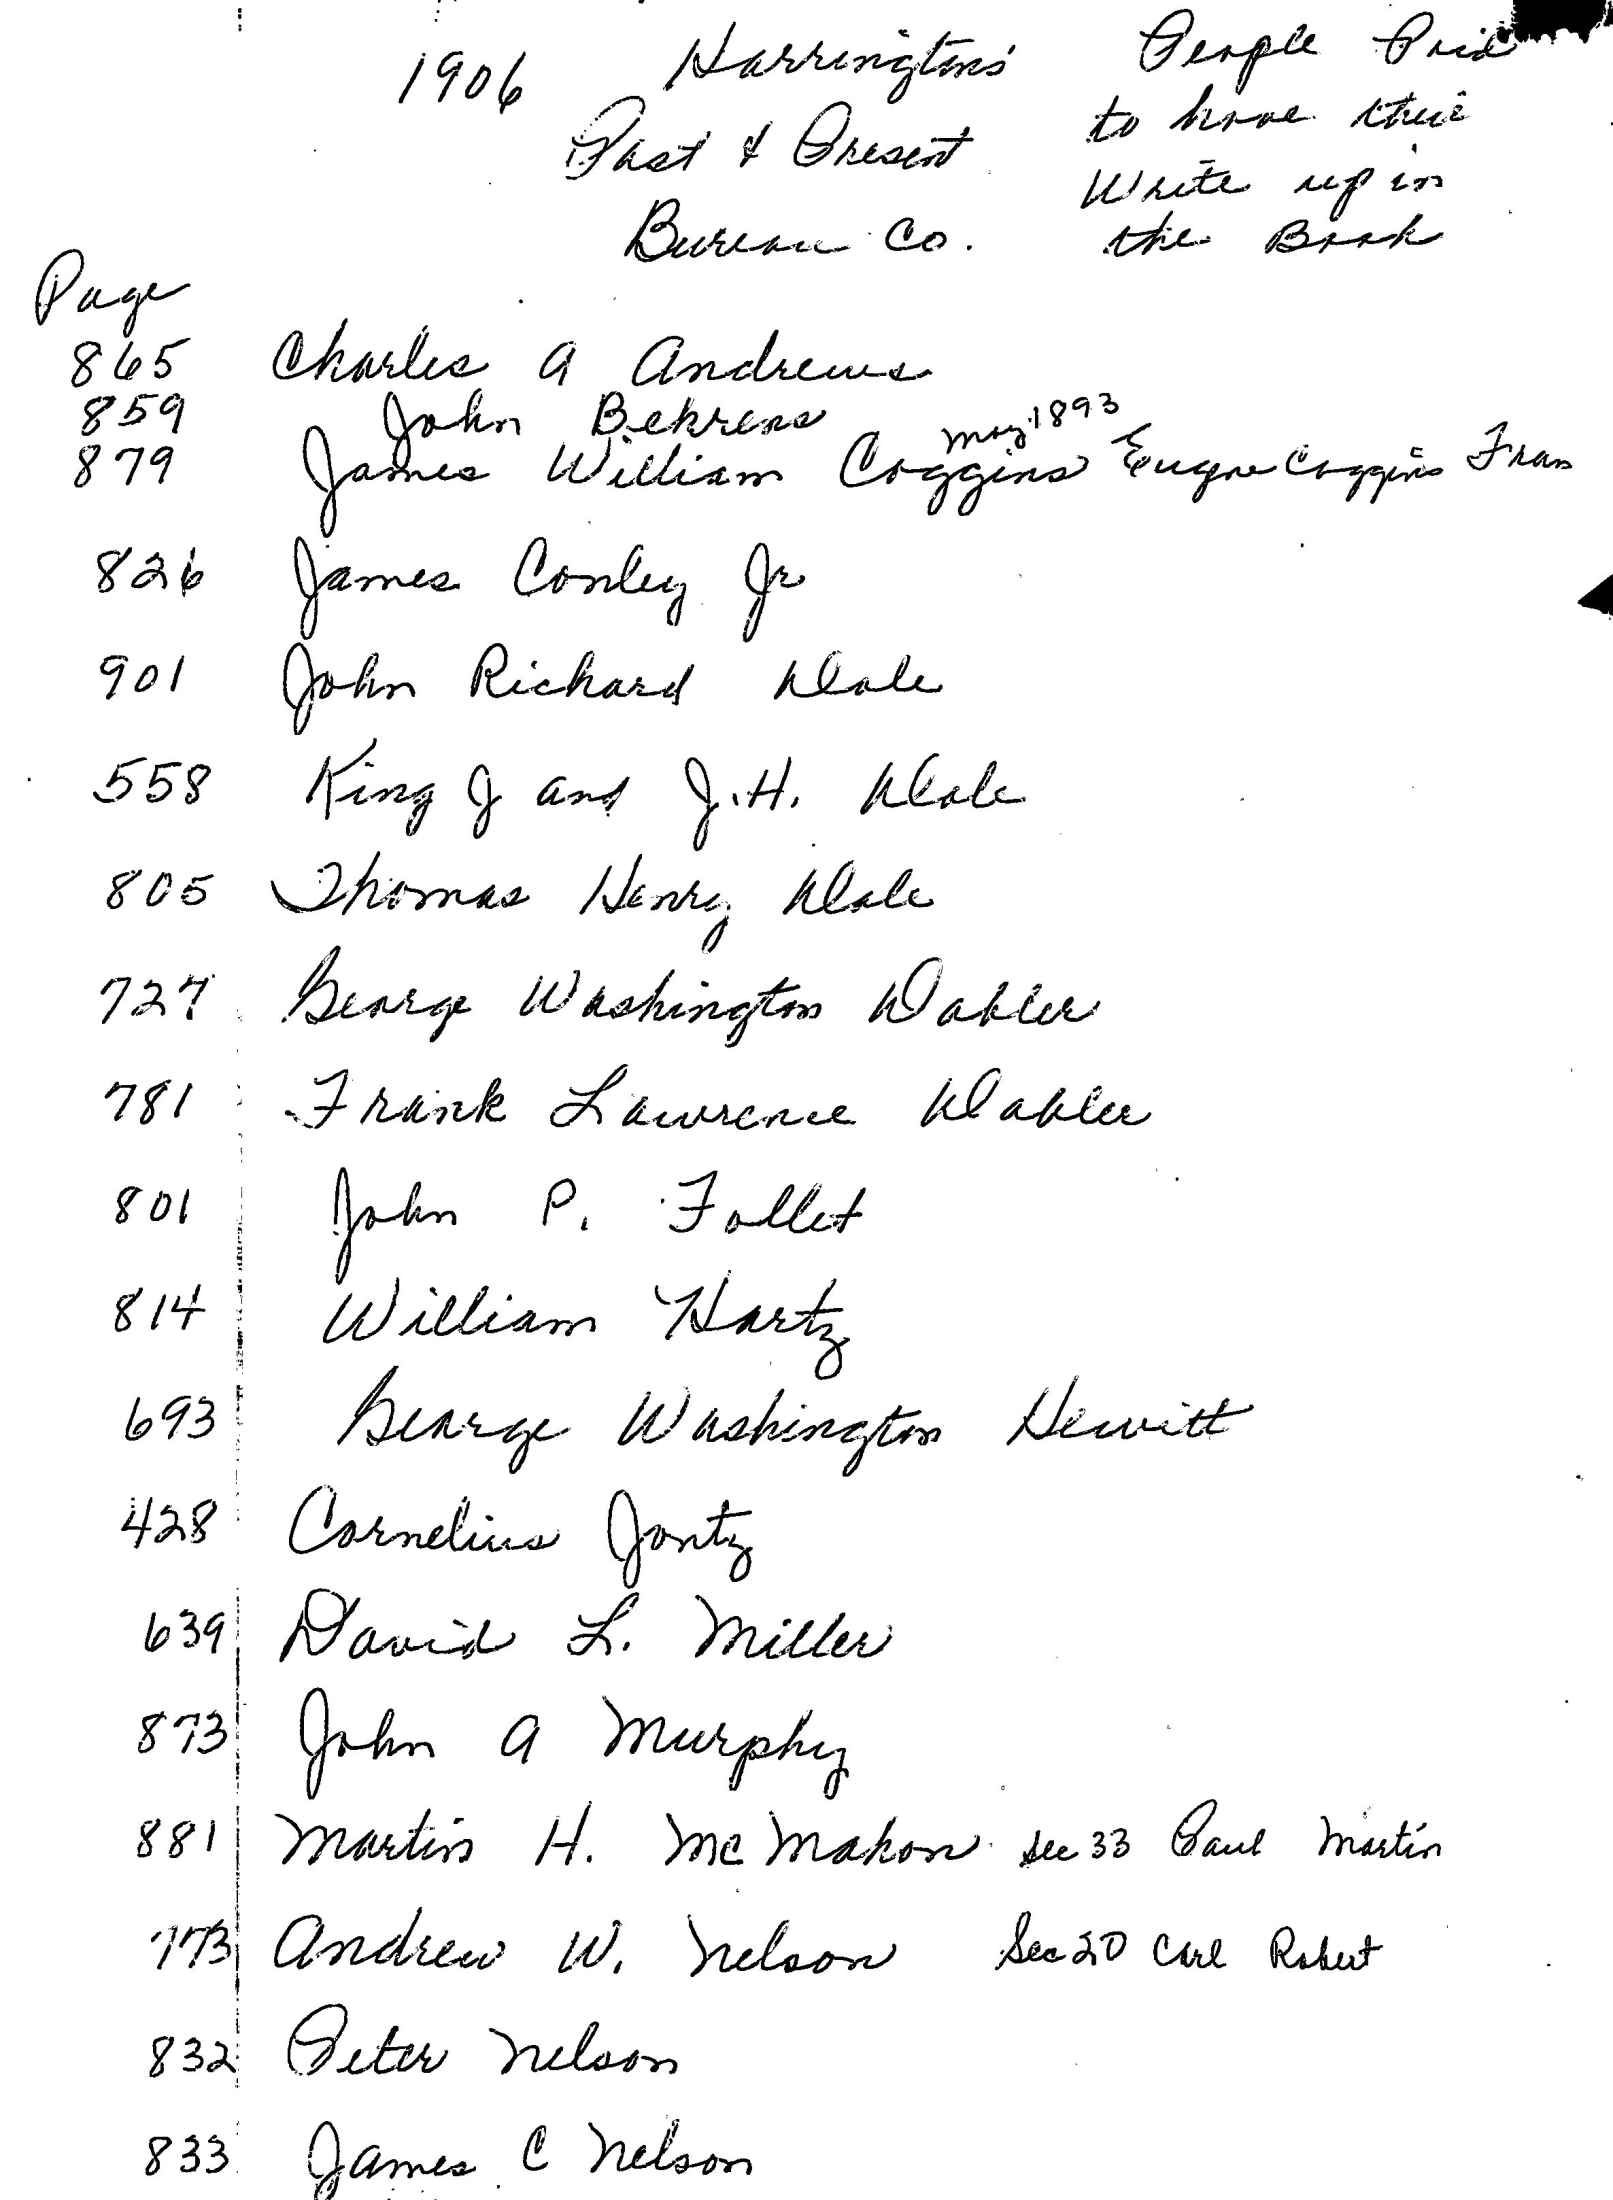 1906 Harringtons' People Paid
Past & Present to have their
Bureau Co. Write up in
the Book
Page
865 Charles A Andrews
859 John Behrens
May 1893
879 James William Coggins Eugene Coggins Fran
826 James Conley Jr
901 John Richard Dale
558 King J and J.H. Dale
805 Thomas Henry Dale
727 George Washington Dabler
781 Frank Lawrence Dabler
801 John P. Follet
814 William Hartz
693 George Washington Hewitt
428 Cornelius Jontz
639 David L. Miller
873 John A Murphy
881 Martin H. McMahon Sec 33 Paul Martin
773 Andrew W. Nelson Sec 20 Carl Robert
832 Peter Nelson
833 James C Nelson